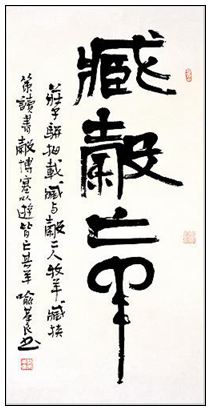 臧穀亡羊
莊子駢拇載臧与穀二人牧羊臧挾
策讀書穀博塞以遊皆亡其羊 喻